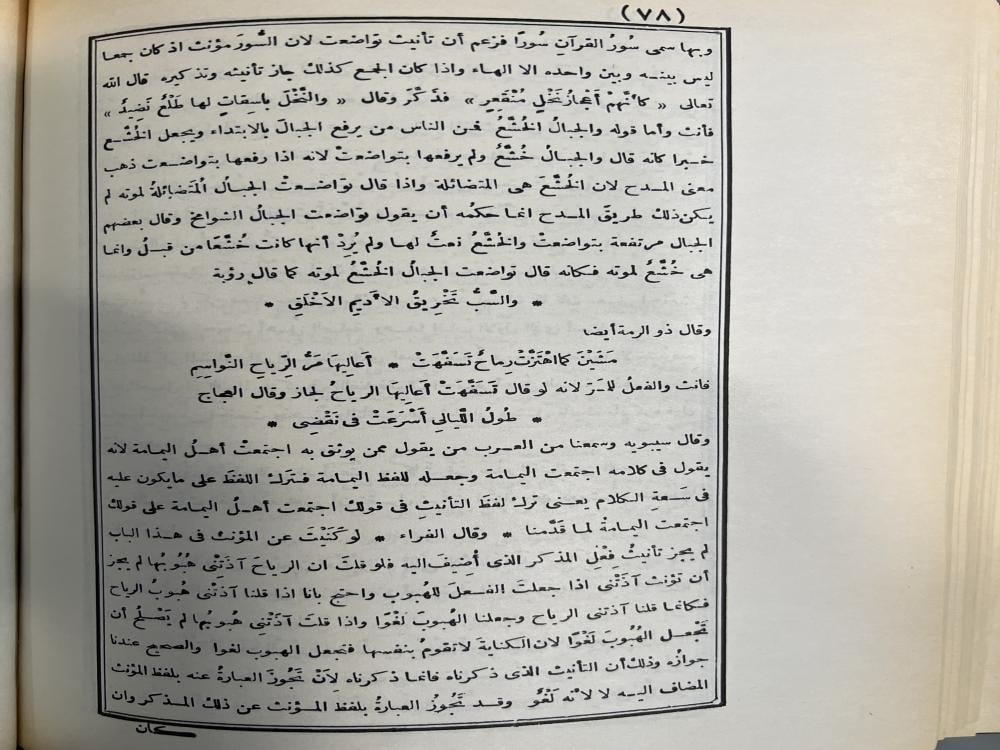 (٧٨)
وبها سمى سُورُ القرآنِ سُورًا فزعم أن تأنيث تواضعت لان السُّورَ مؤنث اذ كان جمعا
ليس بينه وبين واحده الا الهاء واذا كان الجمع كذلك جاز تأنيثه وتذكيره قال الله
تعالى « كأنَّهمْ أعْجازُ نَخْلٍ مُنْقَعِرٍ » فذكَّرَ وقال « والنَّخْلَ باسِقاتٍ لها طَلْعٌ نَضِيدٌ »
فأنث وأما قوله والجبالُ الخُشَّعُ فمن الناس من يرفع الجبالَ بالابتداء ويجعل الخُشَّع
خبرا كانه قال والجبالُ خُشَّعُ ولم يرفعها بتواضعتْ لانه اذا رفعها بتواضعت ذهب
معنى المدح لان الخُشَّعَ هى المتضائلة واذا قال تواضعتْ الجبالُ المُتَضَائلةُ لموته لم
يكن ذلك طريقَ المدح انما حكمُه أن يقول تواضعت الجبالُ الشوامخ وقال بعضهم
الجبال مرتفعة بتواضعتْ والخُشَّعُ نعتٌ لها ولم يُرِدْ أنها كانت خُشَّعًا من قبلُ وانما
هى خُشَّعُ لموته فكانه قال تواضعت الجبالُ الخُشَّعُ لموته كما قال رؤبة
* والسَّبُّ تَخْرِيقُ الأديمِ الاَخْلَقِ *
وقال ذو الرمة أيضا
مَشَيْنَ كما اهْتَزَّتْ رِماحٌ تَسَفَّهَتْ * أعالِيهَا مَرُّ الرِّياحِ النَّواسِمِ
فانث والفعلُ للمَرّ لانه لو قال تَسَفَّهَتْ أعالِيَهَا الرياحُ لجاز وقال العجاج
* طُولُ اللَّيالِى أَسْرَعَتْ فى نَقْضِى *
وقال سيبويه وسمعنا من العرب من يقول ممن يوثق به اجتمعتْ أهلُ اليمامة لانه
يقول فى كلامه اجتمعت اليمامة وجعله للفظ اليمامة فترك اللفظَ على ما يكون عليه
فى سَعةِ الكلام يعنى ترك لفظَ التأنيثِ فى قولك اجتمعت أهلُ اليمامة على قولك
اجتمعت اليمامةُ لما قدَّمنا * وقال الفراء * لو كَنَيْتَ عن المؤنث فى هذا الباب
لم يجز تأنيثُ فِعْلِ المذكر الذى أُضِيفَ اليه فلو قلتَ ان الرياحَ آذَتْنِى هُبُوبُها لم يجز
أن تؤنث آذَتْنِى اذا جعلتَ الفعلَ للهُبوب واحتج بانا اذا قلنا آذَتْنِى هُبوبُ الرياح
فكانما قلنا آذتنى الرياح وجعلنا الهُبوبَ لَغْوًا واذا قلتَ آذَتْنِى هُبوبُها لم يَصْلُحْ أن
تَجْعلَ الهُبُوبَ لَغْوًا لان الكنايةَ لا تقومُ بنفسها فتجعل الهبوب لغوا والصحيح عندنا
جوازُه وذلك أن التأنيث الذى ذكرناه فانما ذكرناه لِأَنْ تَجُوزَ العبارةُ عنه بلفظ المؤنث
المضاف اليه لا لأنه لَغْوٌ وقد تَجُوزُ العبارةُ بلفظ المؤنث عن ذلك المذكر وان
كان